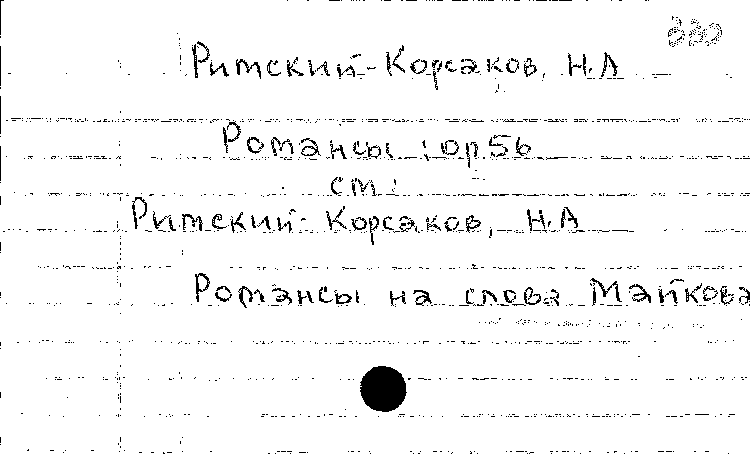 330
Римский-Корсаков, Н.А
Романсы : ор 56
см :
Римский-Корсаков, Н.А
Романсы на слова Майкова